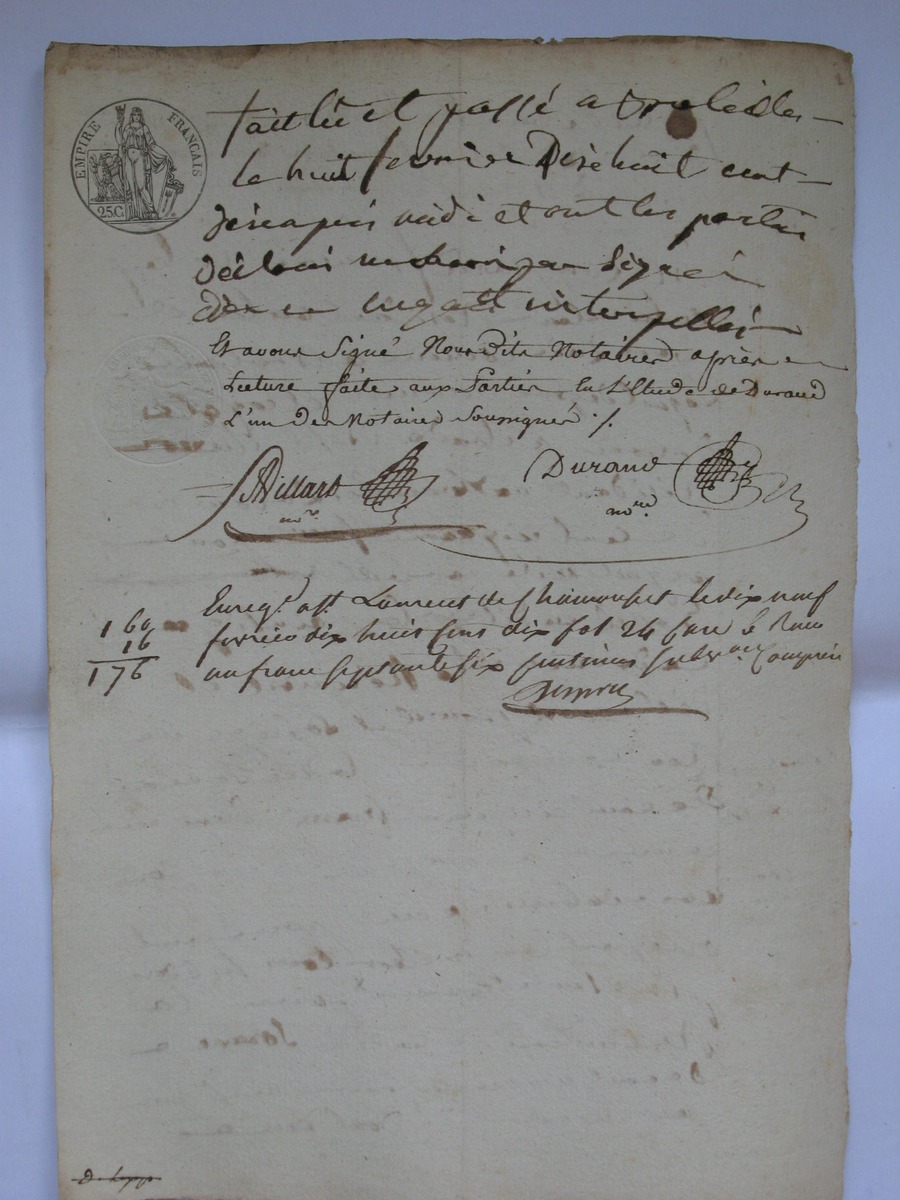 EMPIRE FRANÇAIS
25.C.
fait lu et passé a
le huit fevrier Dix huit cent
dix apres midi et ont les parties
Declaré ne scavoir signer
de ce enquis et interpellés
Et avons Signé Nous Dits Notaires apres
Lecture faite aux Parties En L'Etude de Durand
L'un Des Notaires Soussignés ./.
Villard Durand
nore nore
Enregé a St Laurent de Chamousset le dix neuf
fevrier dix huit cens dix fol 24 Recu
un franc septante six centimes subvon Comprise
1 60
16
176